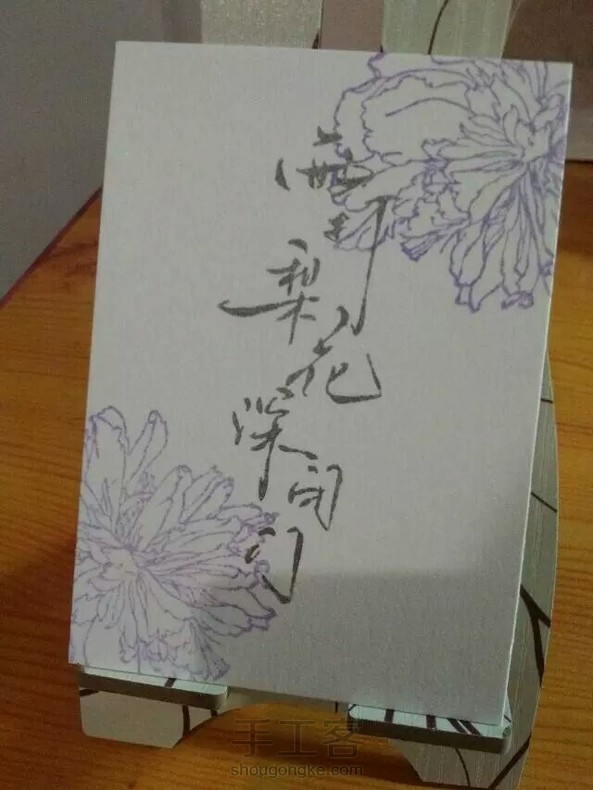 雨打梨花深闭门
手工客
shougongke.com